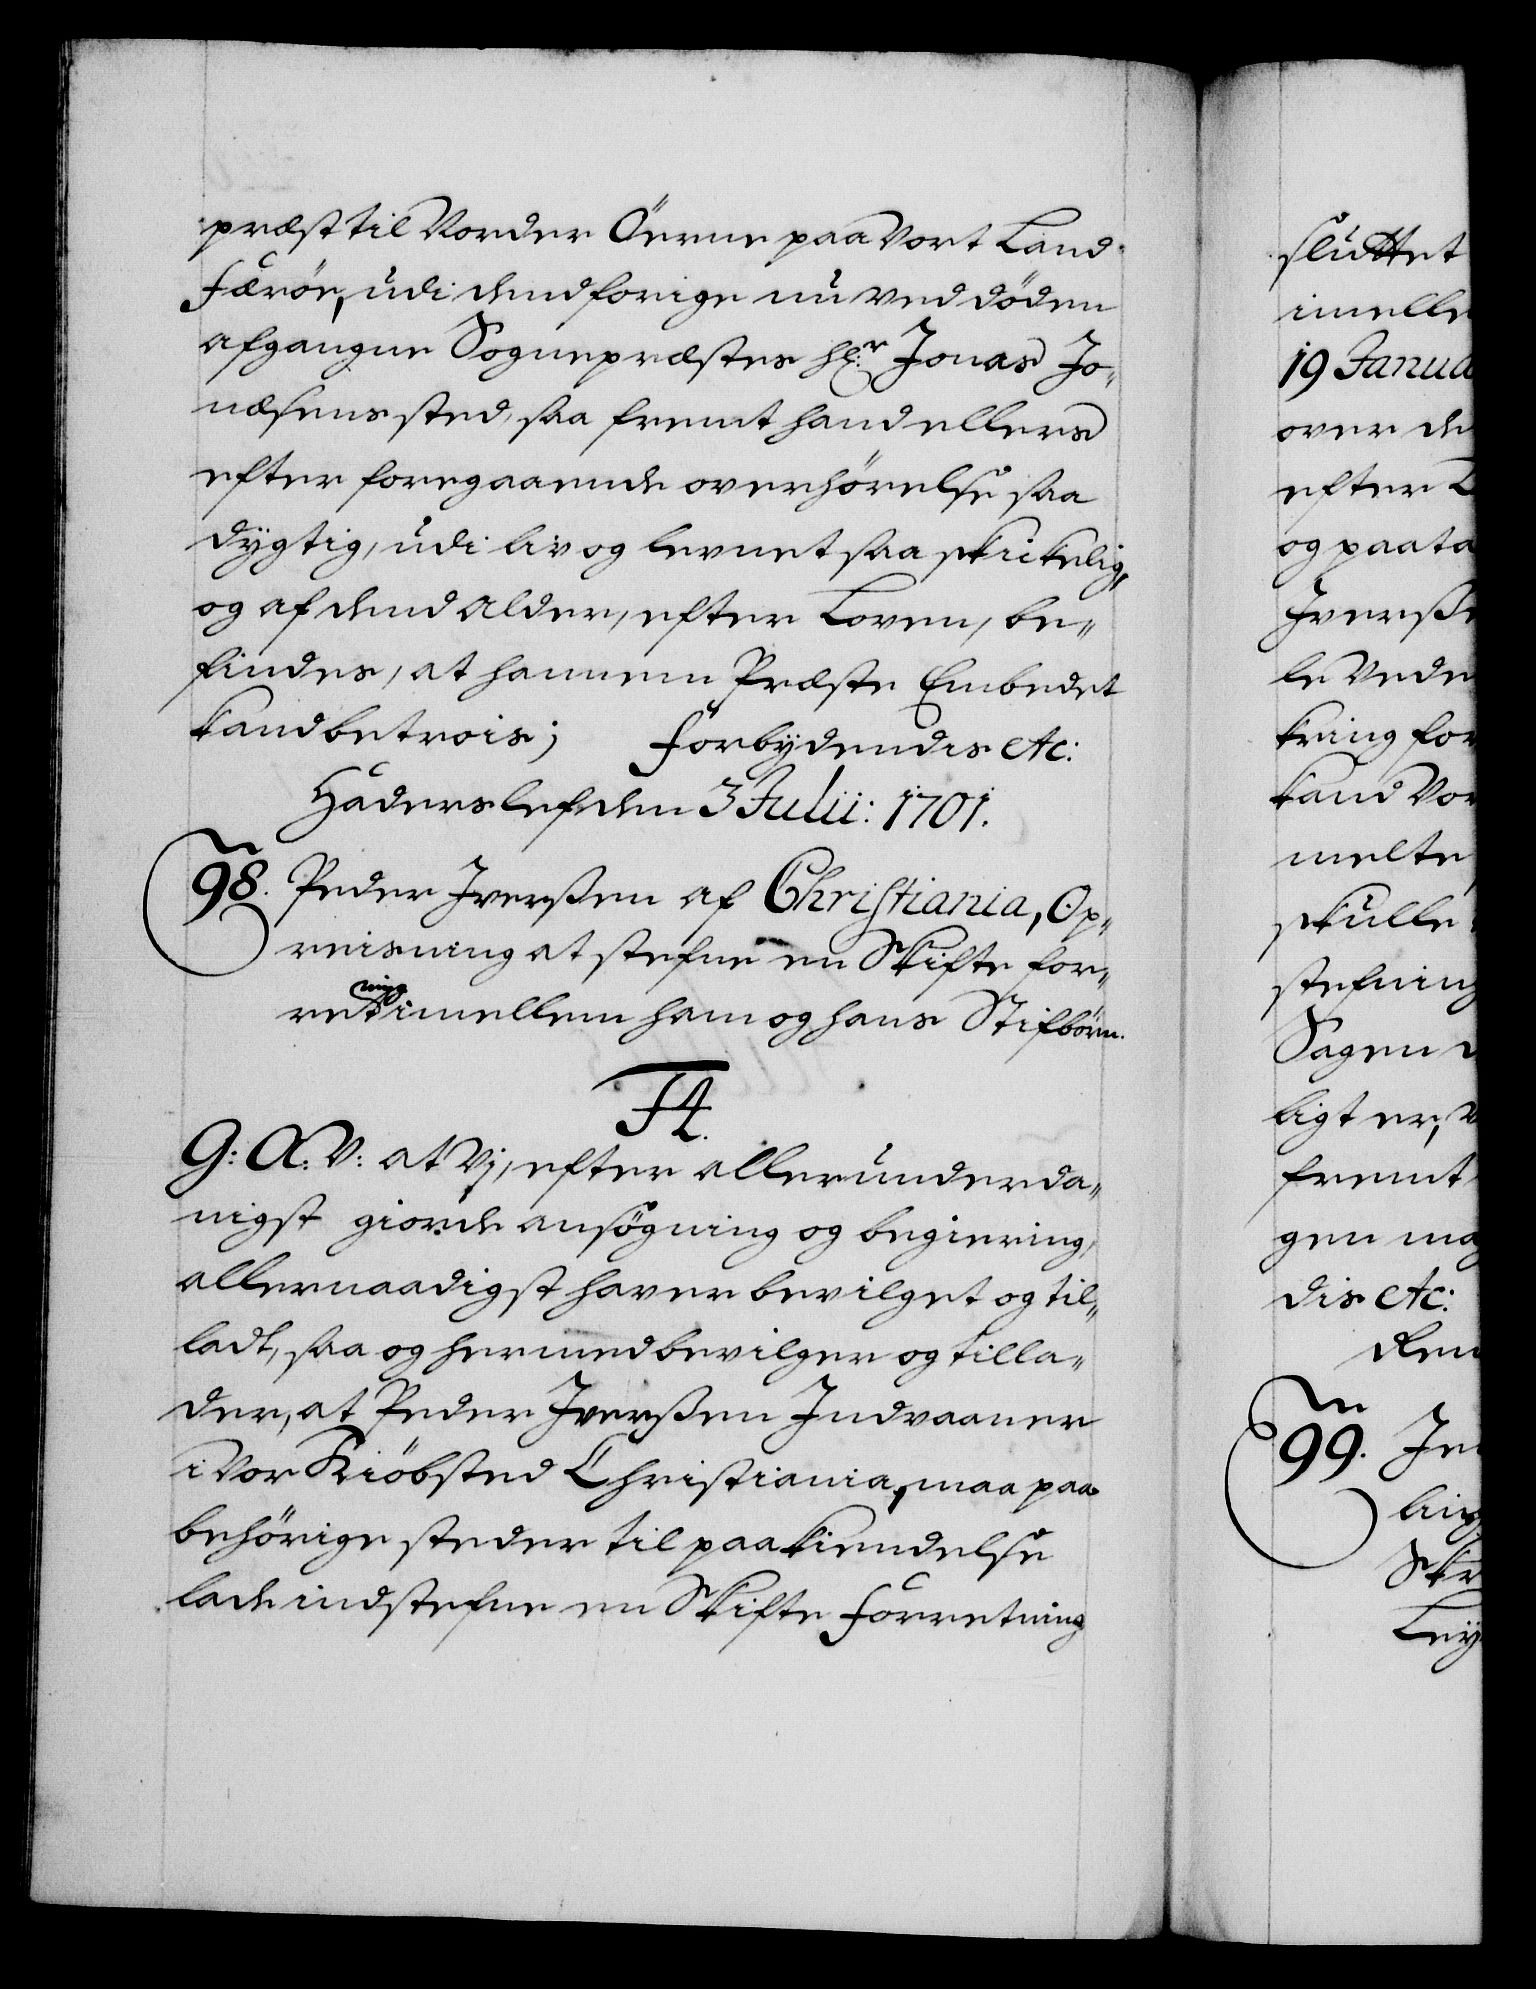 præst til Norder Öerne paa Vort Land
Færöe, udi dend forige nu ved döden
afgangne Sognepræstes Hl:r Jonas Jo„
næsens sted, saa fremt hand ellers
efter foregaaende overhörelse saa
dygtig, udi liv og levnet saa skickelig,
og af dend Alder, efter Loven, be„
findes, at hannem Præste Embedet
kand betrois; Forbydendis etc:
Haderslef den 3 Julii: 1701.
98. Peder Iverßen af Christiania, Op„
reisning at stefne en Skifte for„
retning imellem ham og hans Stifbörn.
F4.
G: A: V: at Vj, efter allerunderda„
nigst giorde ansögning og begiering,
allernaadigst haver bevilget og til„
ladt, saa og hermed bevilger og tilla„
der, at Peder Iverßen Indvaaner
i Vor Kiöbsted Christiania, maa paa
behörige steder til paakiendelse
lade indstefne en Skifte Forretning
sluttet
imelle
19 Janua
over de
efter L
og paata
Iverße
le Vede
kring for
kand Vor
melte,
skulle
stefning
Sagen
ligt er, V
fremt
gen maa
dis etc:
den
99. Je
ling
Skr
Ley